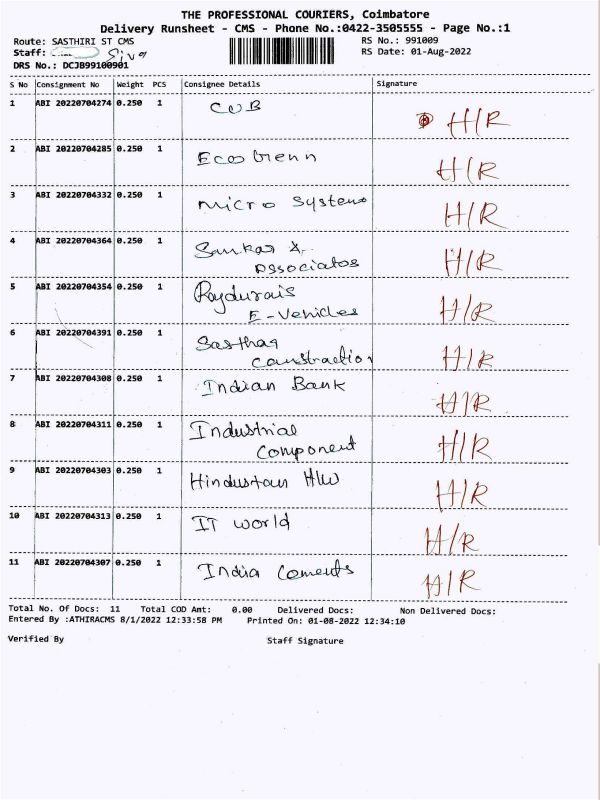 THE PROFESSIONAL COURIERS, Coimbatore
Delivery Runsheet - CMS - Phone No.:0422-3505555 - Page No.:1
Route: SASTHIRI ST CMS RS No.: 991009
Staff: Siva RS Date: 01-Aug-2022
DRS No.: DCJB99100901
S No Consignment No Weight PCS Consignee Details Signature
1 ABI 20220704274 0.250 1 CUB H/R
2 ABI 20220704285 0.250 1 H/R
3 ABI 20220704332 0.250 1 Micro Systems H/R
4 ABI 20220704364 0.250 1 Sankar & H/R
Associates
5 ABI 20220704354 0.250 1 H/R
E-Vehicles
6 ABI 20220704391 0.250 1 Sasthaa H/R
Construction
7 ABI 20220704308 0.250 1 Indian Bank H/R
8 ABI 20220704311 0.250 1 Industrial H/R
Component
9 ABI 20220704303 0.250 1 Hindustan HW H/R
10 ABI 20220704313 0.250 1 IT World H/R
11 ABI 20220704307 0.250 1 India Cements H/R
Total No. Of Docs: 11 Total COD Amt: 0.00 Delivered Docs: Non Delivered Docs:
Entered By :ATHIRACMS 8/1/2022 12:33:58 PM Printed On: 01-08-2022 12:34:10
Verified By Staff Signature